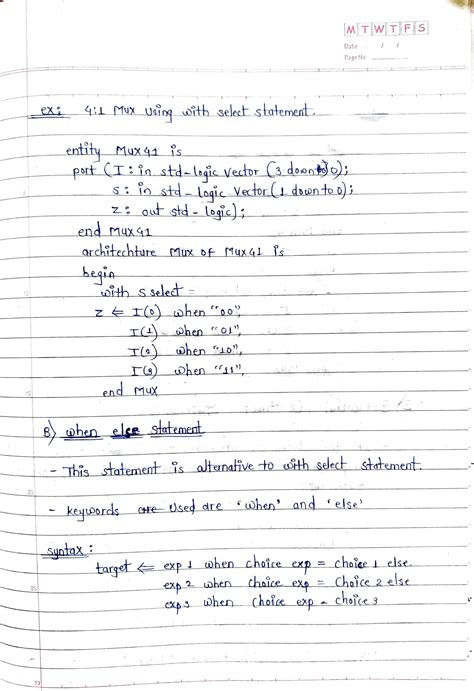 M T W T F S
Date : / /
Page No.
ex: 4:1 Mux using with select statement.
entity Mux41 is
port (I : in std-logic vector (3 downto 0);
s : in std-logic vector (1 down to 0);
z : out std-logic);
end Mux41
architechture Mux of Mux41 is
begin
with s select =
z ⇐ I(0) when "00",
I(1) when "01",
I(2) when "10",
I(3) when "11",
end Mux
B) when else statement
- This statement is alternative to with select statement.
- keywords are used are 'when' and 'else'
syntax :
target ⇐ exp 1 when choice exp = choice 1 else.
exp 2 when choice exp = choice 2 else
exp 3 when choice exp - choice 3